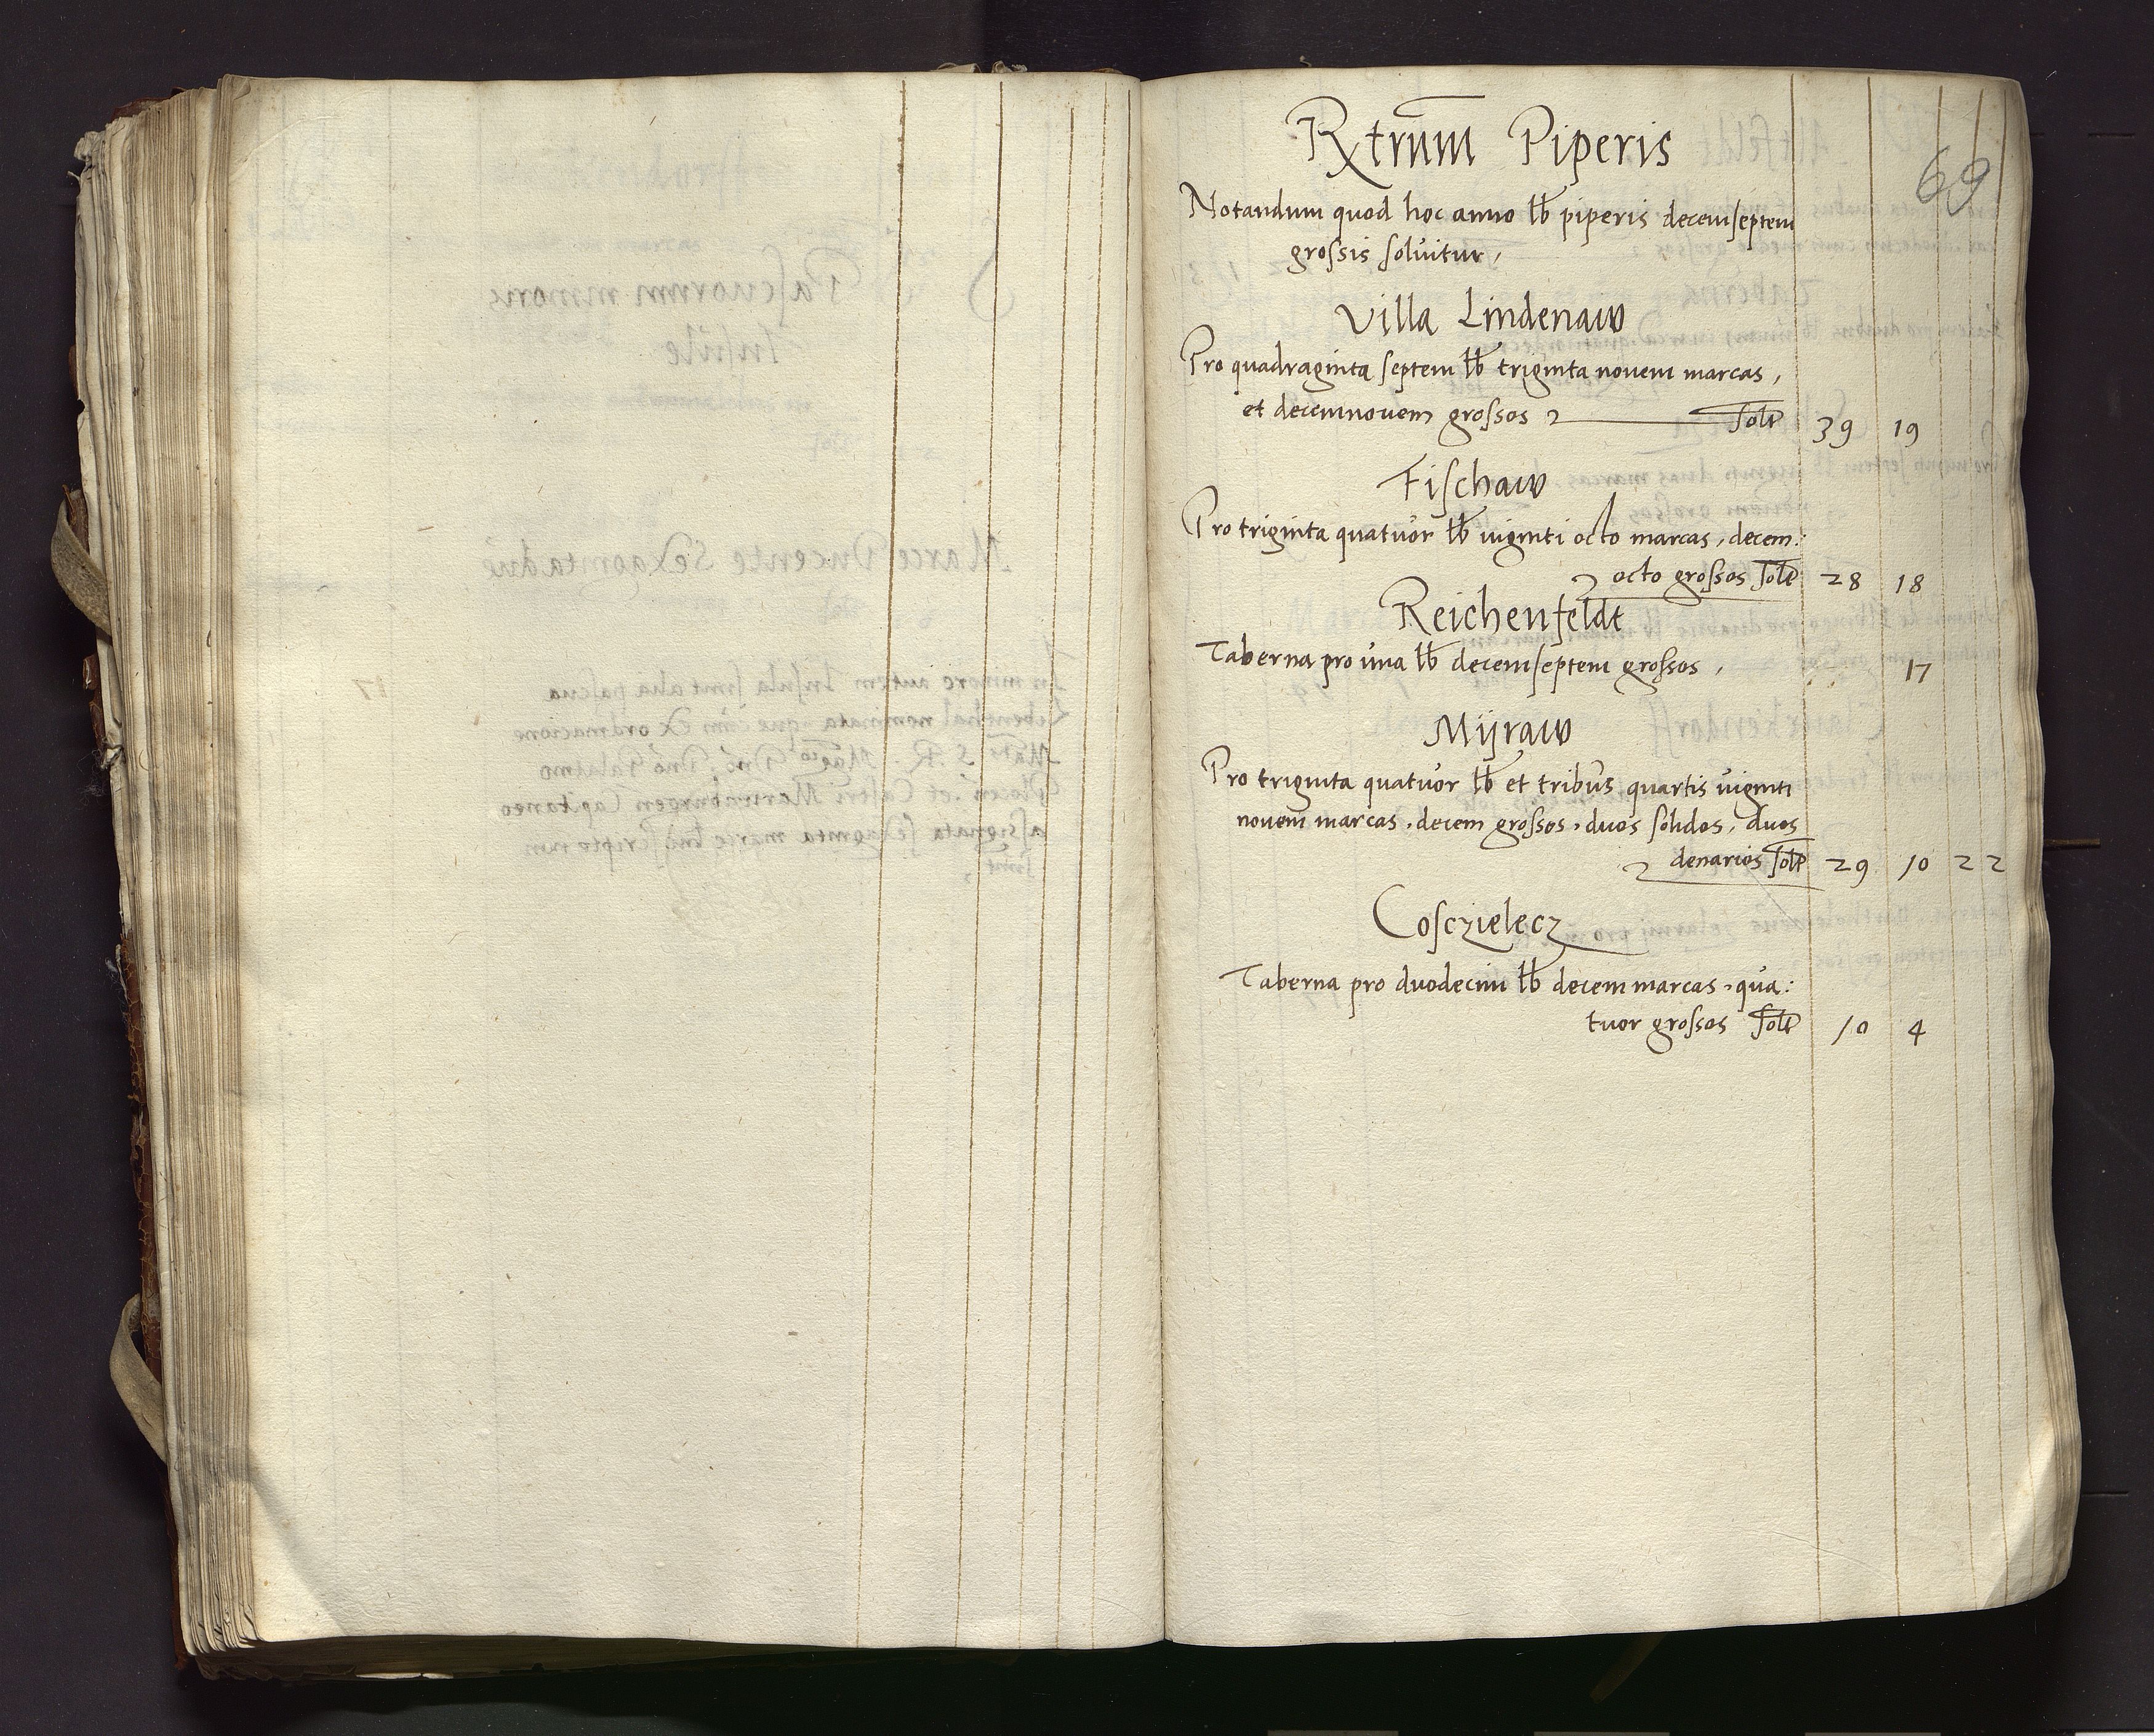 69
Rxtrum Piperis
Notandum quod hoc anno lb piperis decemseptem
grossis soluitur,
Villa Lindenaw
Pro quadraginta septem lb triginta nouem marcas,
et decemnouem grossos solt 39 19
Fischaw
Pro triginta quatuor lb uiginti octo marcas, decem:
octo grossos solt 28 18
Reichenfeldt
Taberna pro una lb decemseptem grossos, 17
Mÿraw
Pro triginta quatuor lb et tribus quartis uiginti
nouem marcas, decem grossos, duos solidos, duos
denarios solt 29 10 2 2
Cosczielecz
Taberna pro duodecim lb decem marcas, qua:
tuor grossos solt 10 4